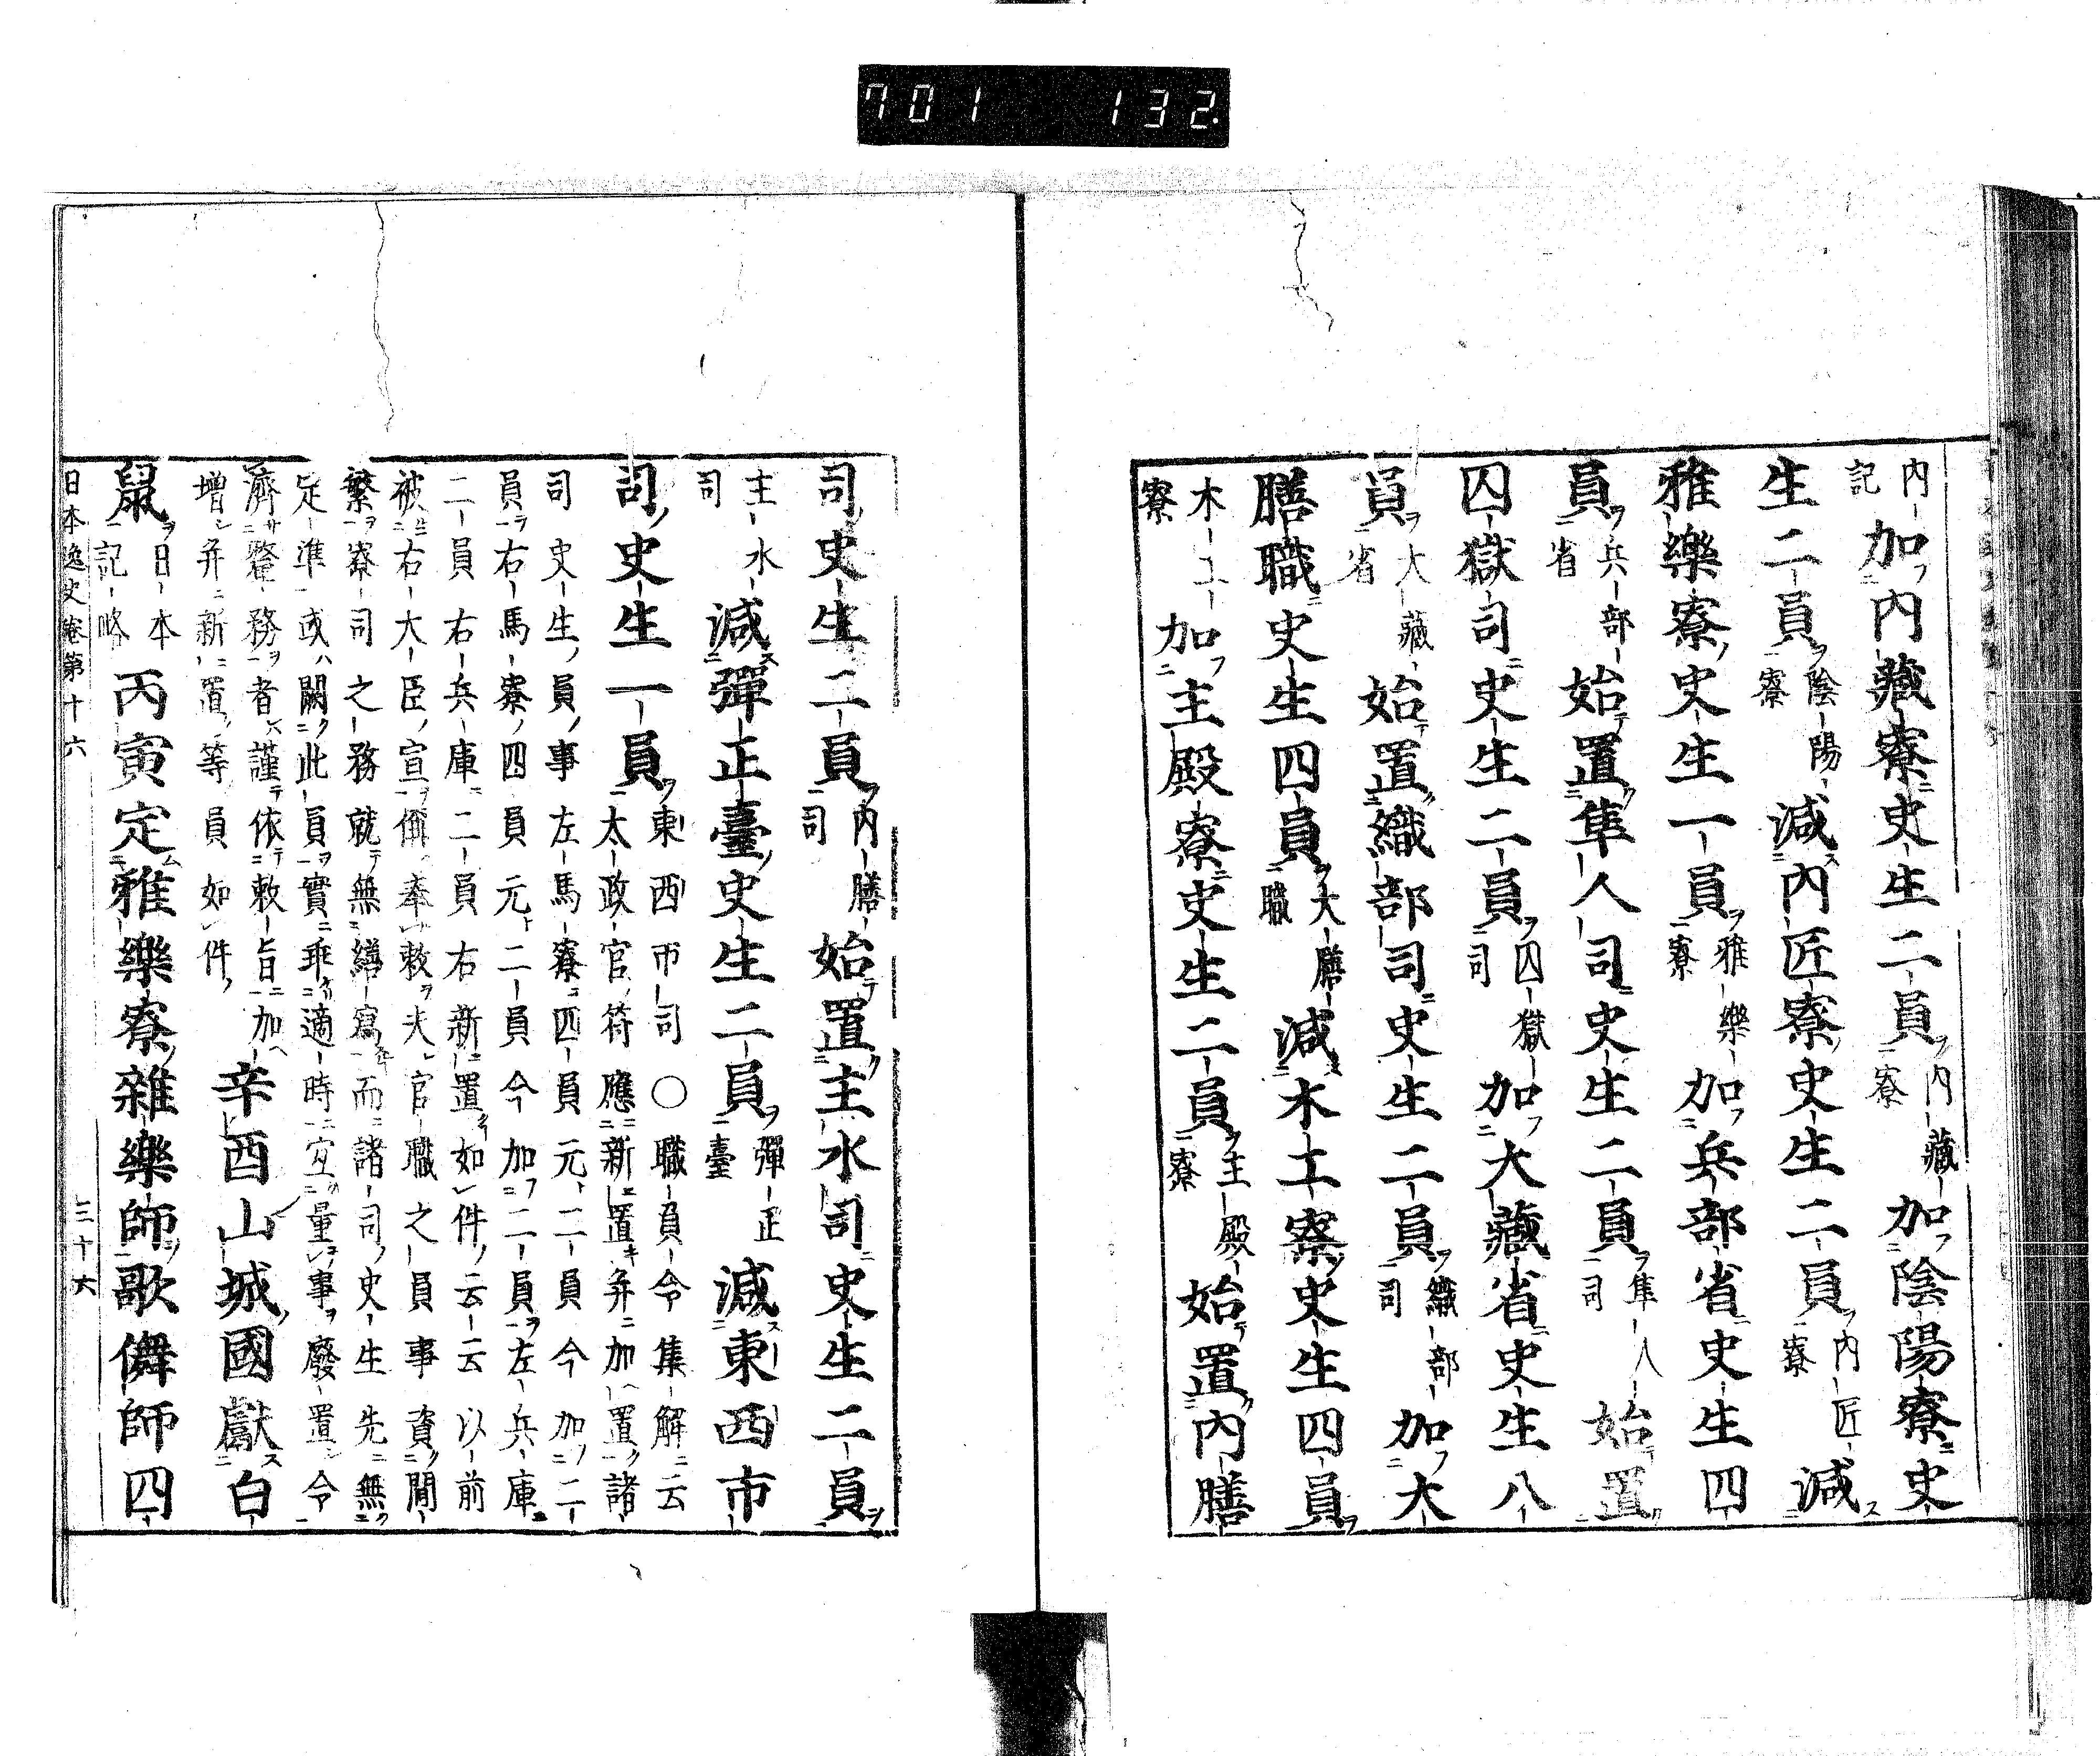 701 132.
内記加内藏寮史生二員内藏寮加陰陽寮史
生二員陰陽寮減内匠寮史生二員内匠寮減
雅樂寮史生一員雅樂寮加兵部省史生四
員兵部省始置隼人司史生二員隼人司始置
囚獄司史生二員囚獄司加大藏省史生八
員大藏省始置織部司史生二員織部司加大
膳職史生四員大膳職減木工寮史生四員
木工寮加主殿寮史生二員主殿寮始置内膳
司史生二員内膳司始置主水司史生二員
主水司減彈正臺史生二員彈正臺減東西市
司史生一員東西市司○職員令集解云
太政官符應新置并加置諸
司史生員事左馬寮四員元二員今加二
員右馬寮四員元二員今加二員左兵庫
二員右兵庫二員右新置如件云云以前
被右大臣宣偁奉敕夫官職之員事資閒
繁寮司之務就無繕寫而諸司史生先無
定準或闕此員實乖適時宜量事廢置令
濟釐務者謹依敕旨加
增并新置等員如件辛酉山城國獻白
鼠日本記略丙寅定雅樂寮雜樂師歌儛師四
日本逸史卷第十六 三十六